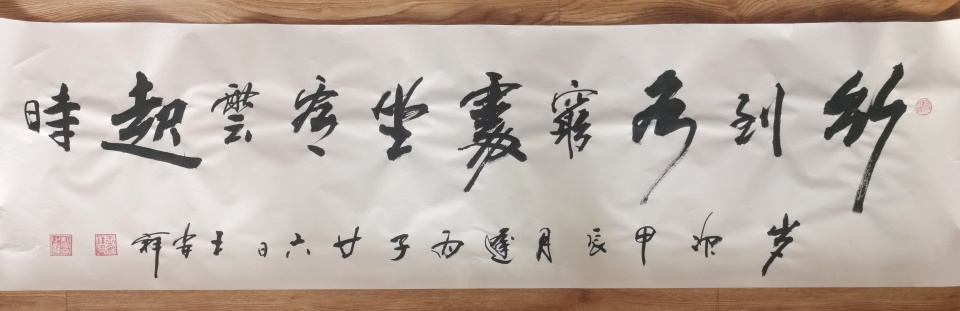 行到水窮處坐看雲起時
岁 甲辰月逢丙子廿六日王安祥